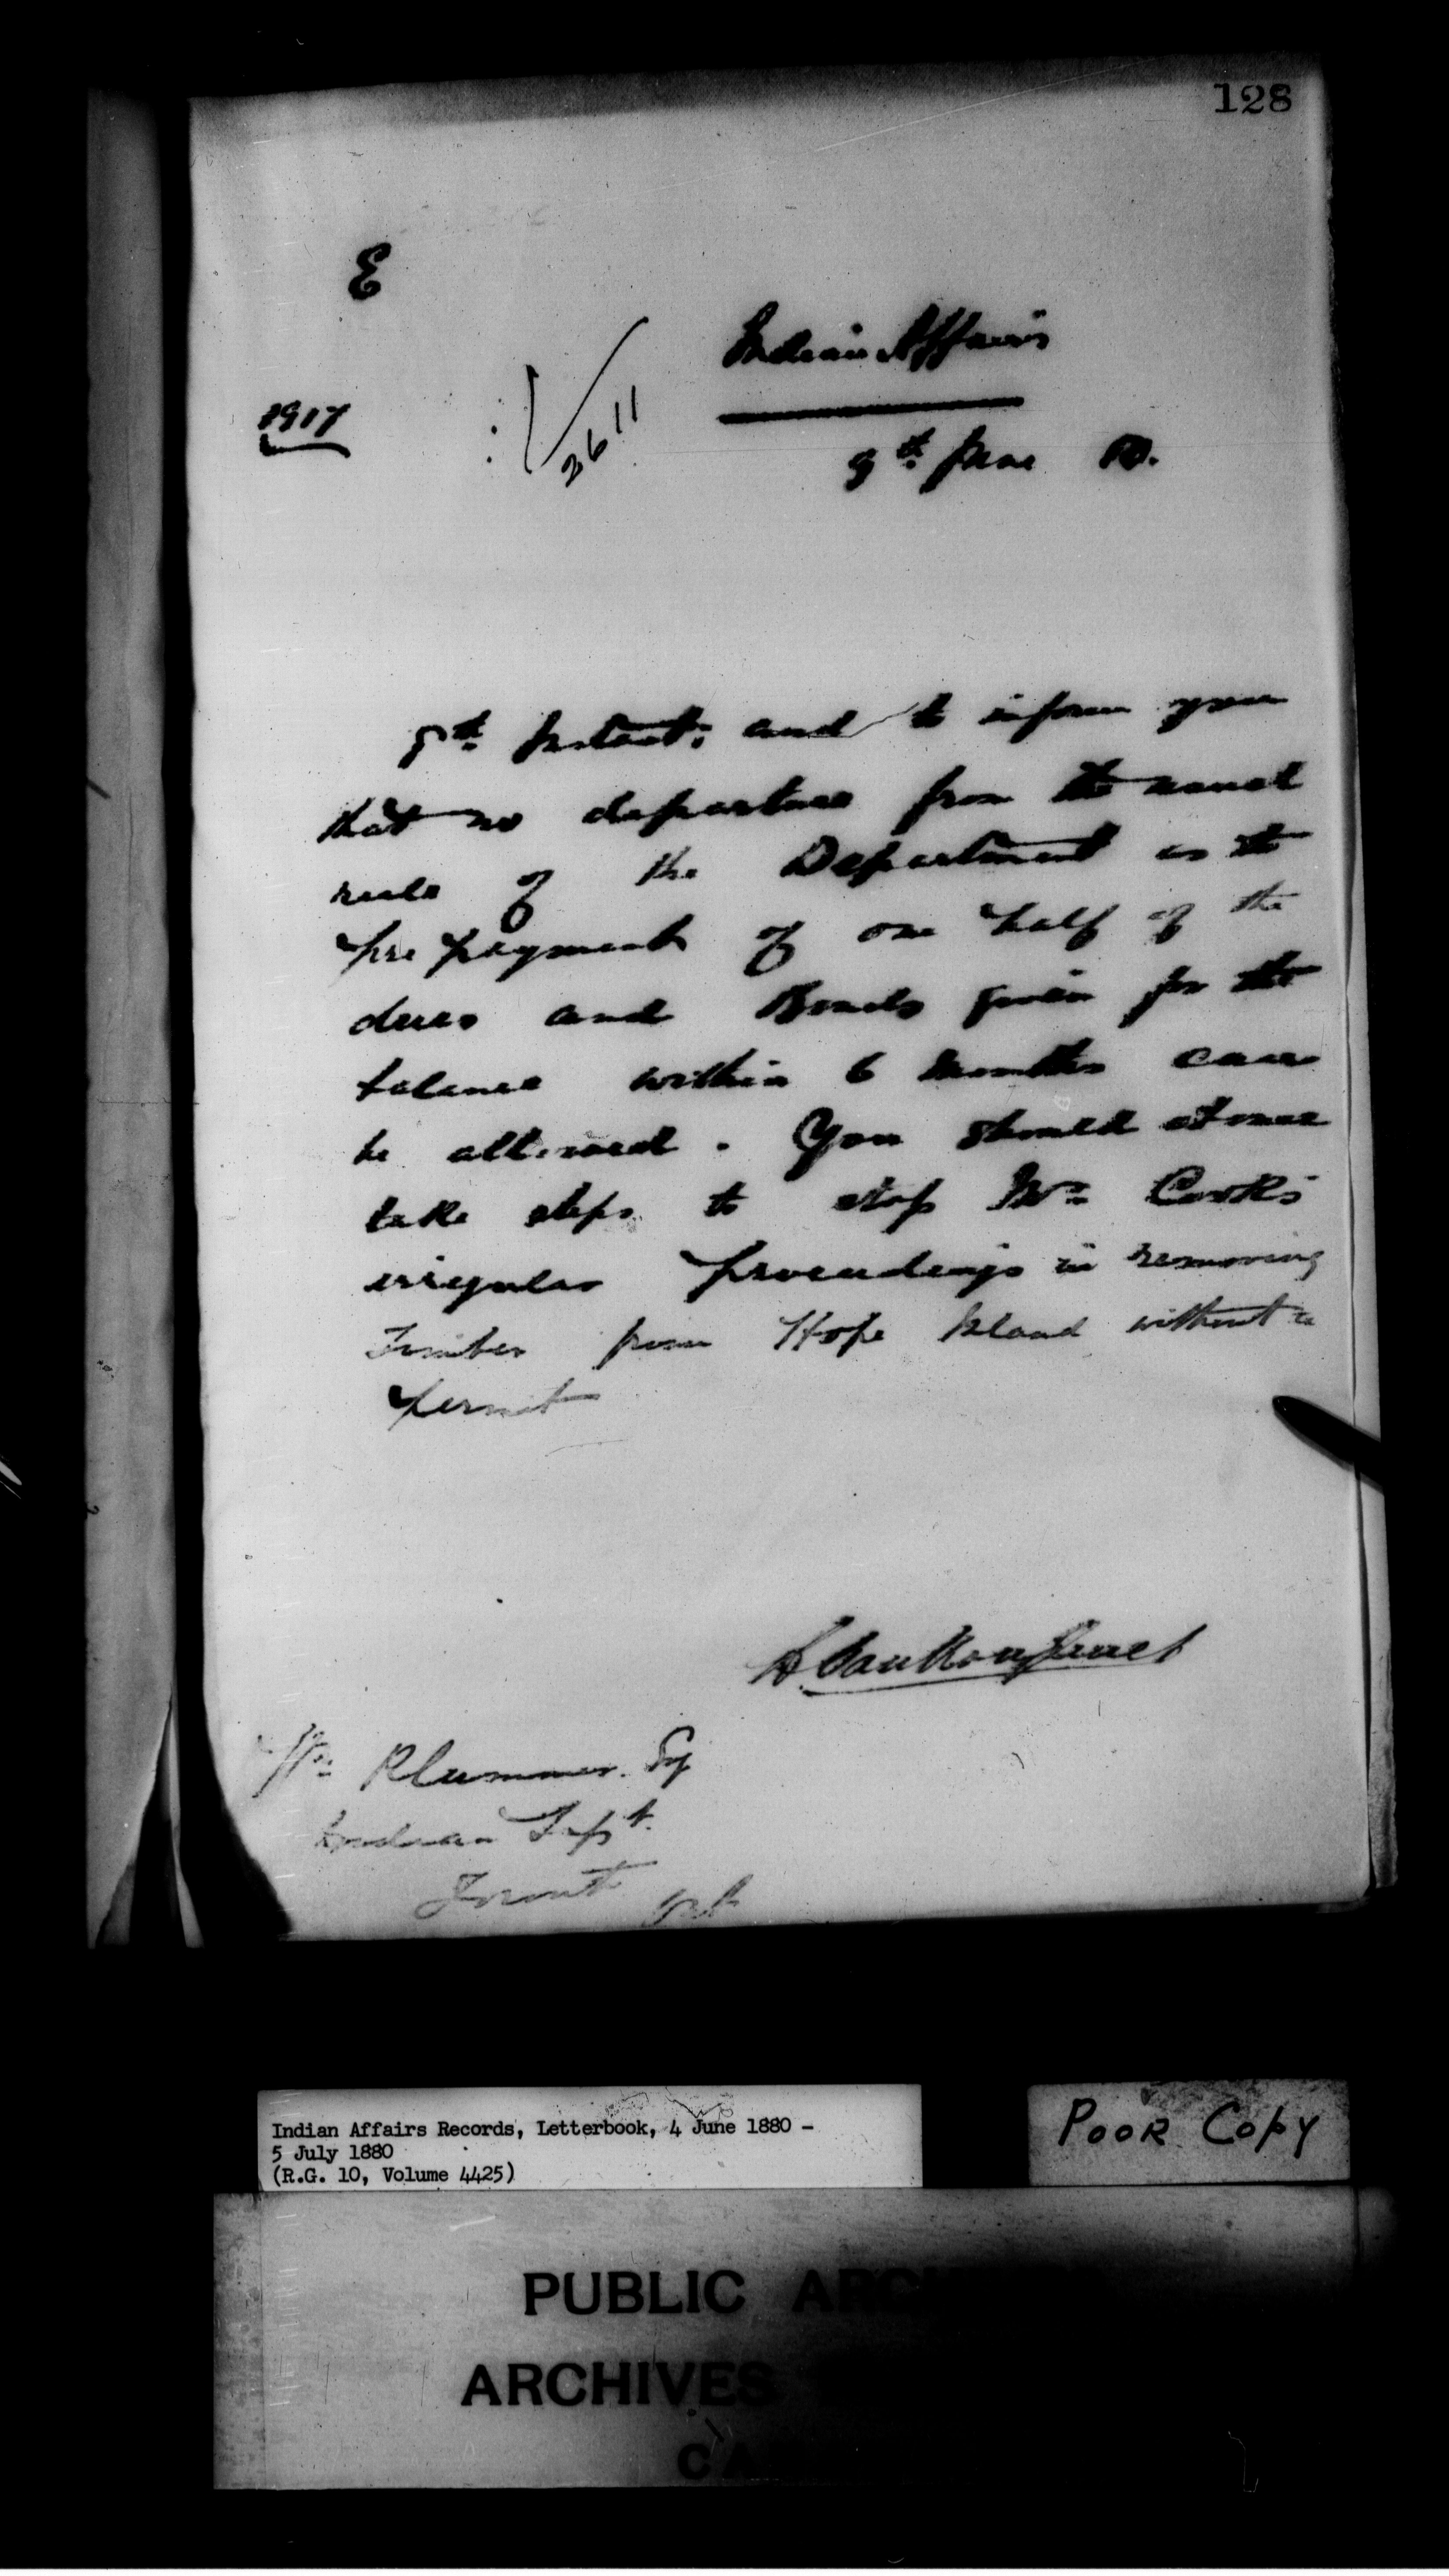 128
E
Indian Affairs
1917
3611
9th June 80.
5th Instant; and to inform you
that no departure from the usual
rule of the Department as to
pre payment of one half of the
dues and Bonds given for the
balance within 6 Months can
be allowed. You should at once
take steps to stop Mr. Cook's
irregular proceedings in removing
Timber from Hope Island without a
permit
L. VanKoughnet
Wm Plummer Esq
Indian Dept.
Toronto Ont
Indian Affairs Records, Letterbook, 4 June 1880 -
5 July 1880
(R.G. 10, Volume 4425)
POOR COPY
PUBLIC ARCHIVES
ARCHIVES
CA